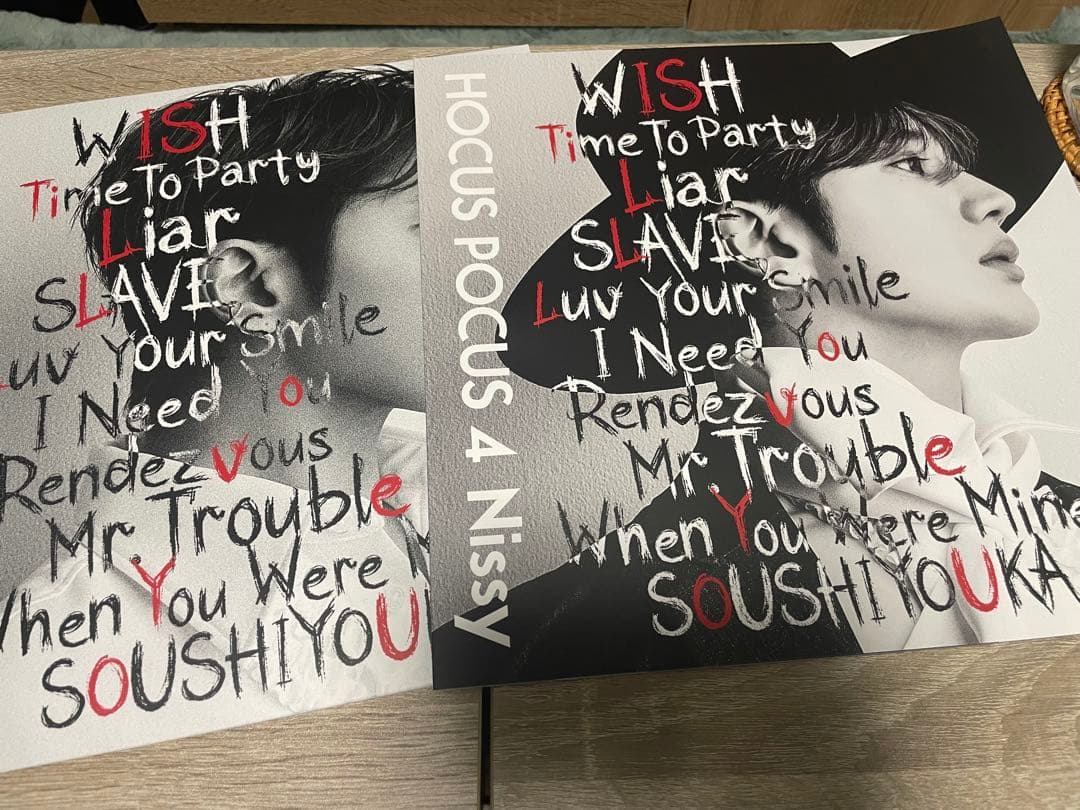 WISH
Time To Party
Liar
SLAVE
Luv Your Smile
I Need You
Rendezvous
Mr. Trouble
When You Were M
SOUSHIYOU
HOCUS POCUS 4 Nissy
WISH
Time To Party
Liar
SLAVE
Luv Your Smile
I Need You
Rendezvous
Mr. Trouble
When You Were Mine
SOUSHIYOUKA